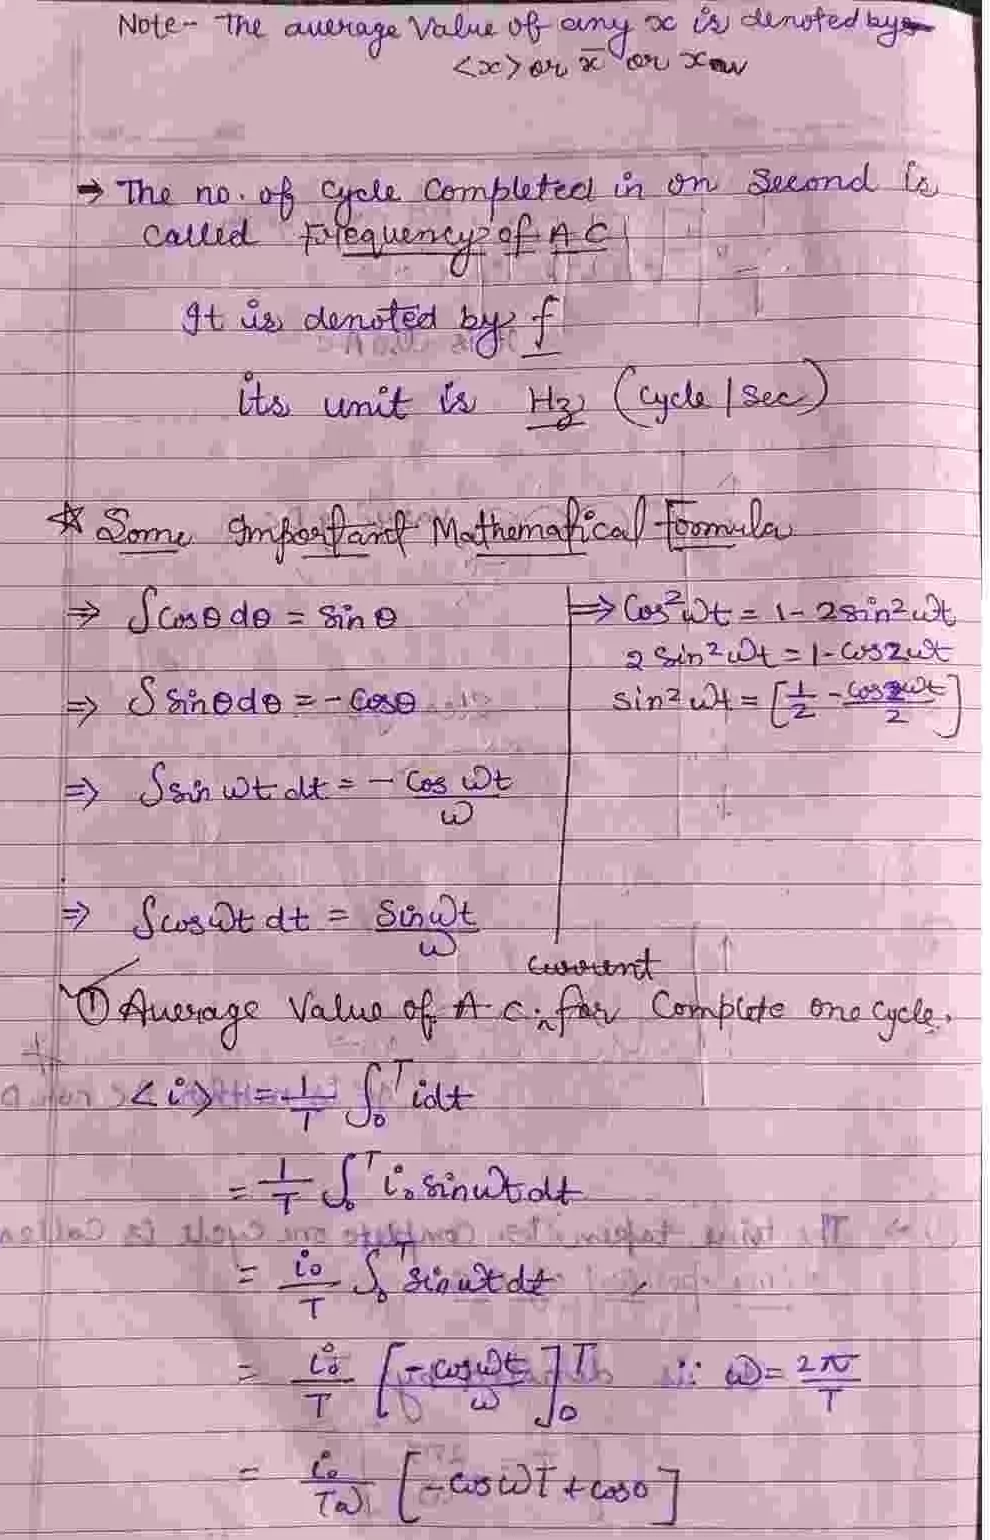 Note- The average Value of any x is denoted by
<x> or x̄ or xav
→ The no. of Cycle Completed in on Second is
Called Frequency of A C
It is denoted by f
its unit is Hz (Cycle / Sec)
☆ Some Important Mathematical Foormula
⇒ ∫Cosθ dθ = Sin θ
⇒ ∫ sinθ dθ = - Cosθ
⇒ ∫sin ωt dt = - Cos ωt / ω
⇒ ∫cosωt dt = Sinωt / ω
⇒ Cos²ωt = 1 - 2sin²ωt
2 Sin²ωt = 1 - Cos2ωt
Sin² ωt = [1/2 - Cos2ωt/2]
① Average Value of A C current for Complete one cycle.
<i> = 1/T ∫₀ᵀ idt
= 1/T ∫₀ᵀ i₀ sinωt dt
= i₀/T ∫₀ᵀ sin ωt dt
= i₀/T [-cosωt/ω]₀ᵀ ∵ ω = 2π/T
= i₀/Tω [-cosωT + cos0]